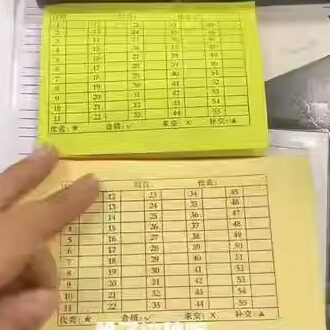 1 12 23 34 45
2 13 24 35 46
3 14 25 36 47
4 15 26 37 48
5 16 27 38 49
6 17 28 39 50
7 18 29 40 51
8 19 30 41 52
9 20 31 42 53
10 21 32 43 54
11 22 33 44 55
优秀:★ 合格:✓ 未交:× 补交:▲
作业:
12 23 34 45
13 24 35 46
14 25 36 47
15 26 37 48
5 16 27 38 49
6 17 28 39 50
7 18 29 40 51
8 19 30 41 52
9 20 31 42 53
10 21 32 43 54
11 22 33 44 55
优秀:★ 合格:✓ 未交:× 补交:▲